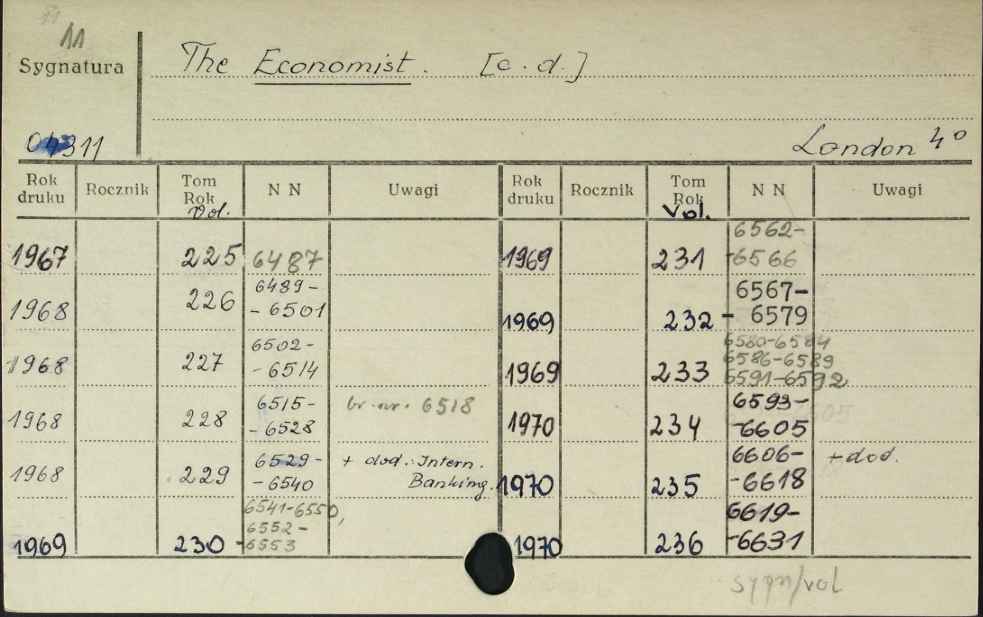 11
Sygnatura
The Economist. [c.d.]
04311
London 4°
Rok druku Rocznik Tom Rok Vol. N N Uwagi Rok druku Rocznik Tom Rok Vol. N N Uwagi
1967 225 6487
1968 226 6489-
- 6501
1968 227 6502-
- 6514
1968 228 6515- br. nr. 6518
- 6528
1968 229 6529- + dod. Intern.
- 6540 Banking.
1969 230 6541-6550,
6552-
-6553
1969 231 6562-
-6566
1969 232 6567-
- 6579
1969 233 6580-6584
6586-6589
6591-6592
1970 234 6593-
-6605
1970 235 6606- +dod.
-6618
1970 236 6619-
-6631
sygn/vol